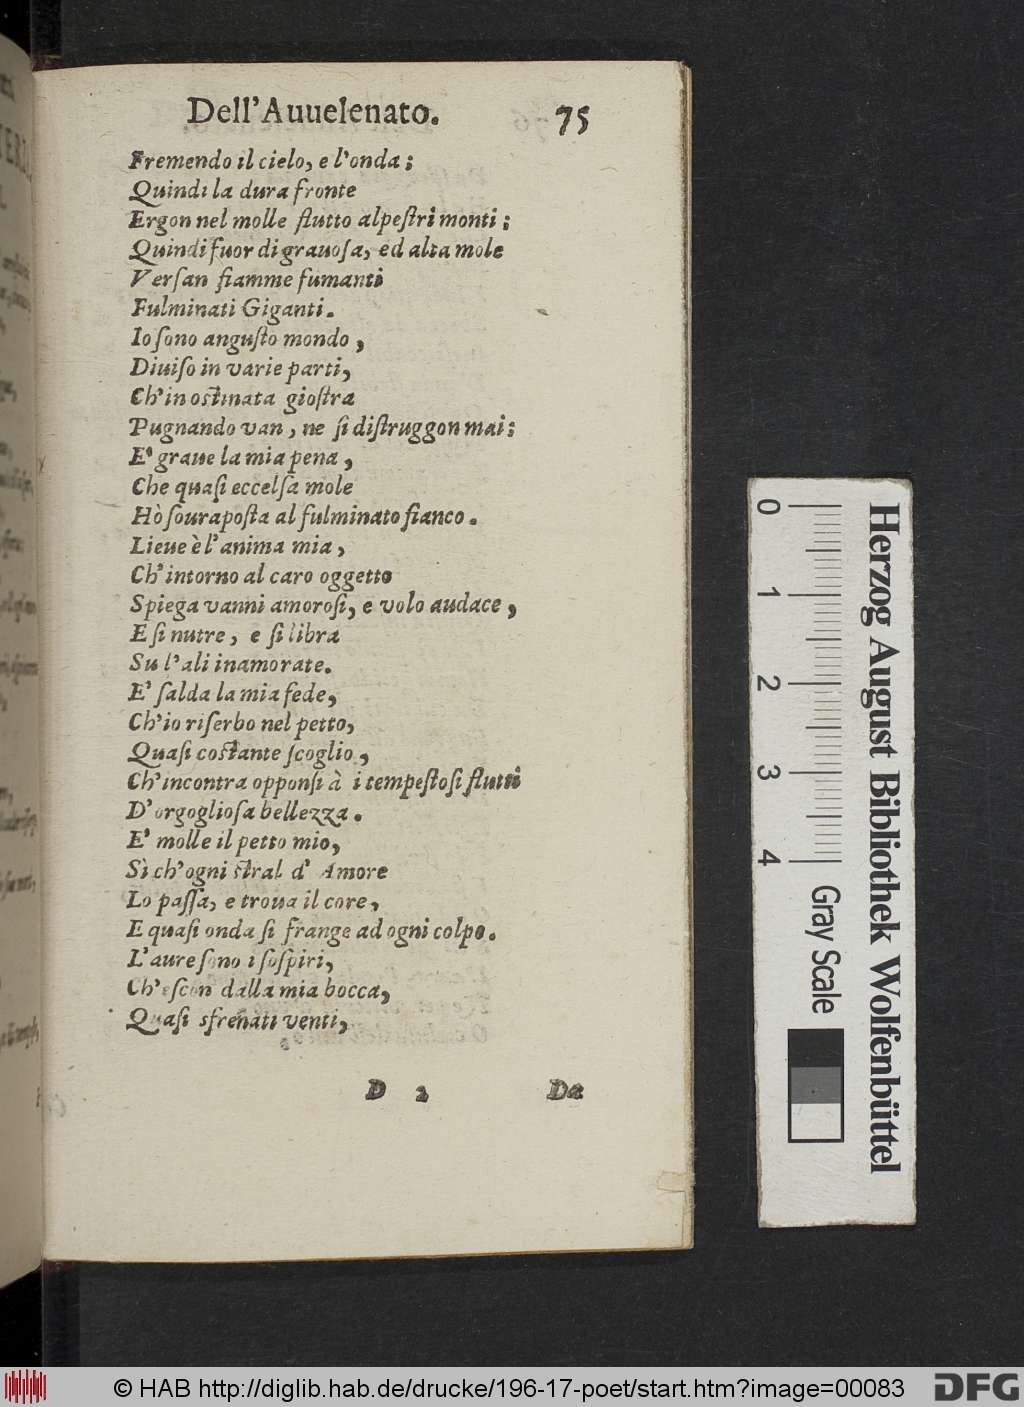 Dell'Auuelenato. 75
Fremendo il cielo, e l'onda;
Quindi la dura fronte
Ergon nel molle flutto alpeſtri monti;
Quindi fuor di grauoſa, ed alta mole
Verſan fiamme fumanti
Fulminati Giganti.
Io ſono anguſto mondo,
Diuiſo in varie parti,
Ch'in oſtinata gioſtra
Pugnando van, ne ſi diſtruggon mai;
E' graue la mia pena,
Che quaſi eccelſa mole
Hò ſourapoſta al fulminato fianco.
Lieue è l'anima mia,
Ch'intorno al caro oggetto
Spiega vanni amoroſi, e volo audace,
E ſi nutre, e ſi libra
Su l'ali inamorate.
E' ſalda la mia fede,
Ch'io riſerbo nel petto,
Quaſi coſtante ſcoglio,
Ch'incontra opponſi à i tempeſtoſi flutti
D'orgoglioſa bellezza.
E' molle il petto mio,
Sì ch'ogni ſtral d'Amore
Lo paſſa, e troua il core,
E quaſi onda ſi frange ad ogni colpo.
L'aure ſono i ſoſpiri,
Ch'eſcon dalla mia bocca,
Quaſi sfrenati venti,
D 2 Da
0 1 2 3 4
Gray Scale
Herzog August Bibliothek Wolfenbüttel
© HAB http://diglib.hab.de/drucke/196-17-poet/start.htm?image=00083
DFG